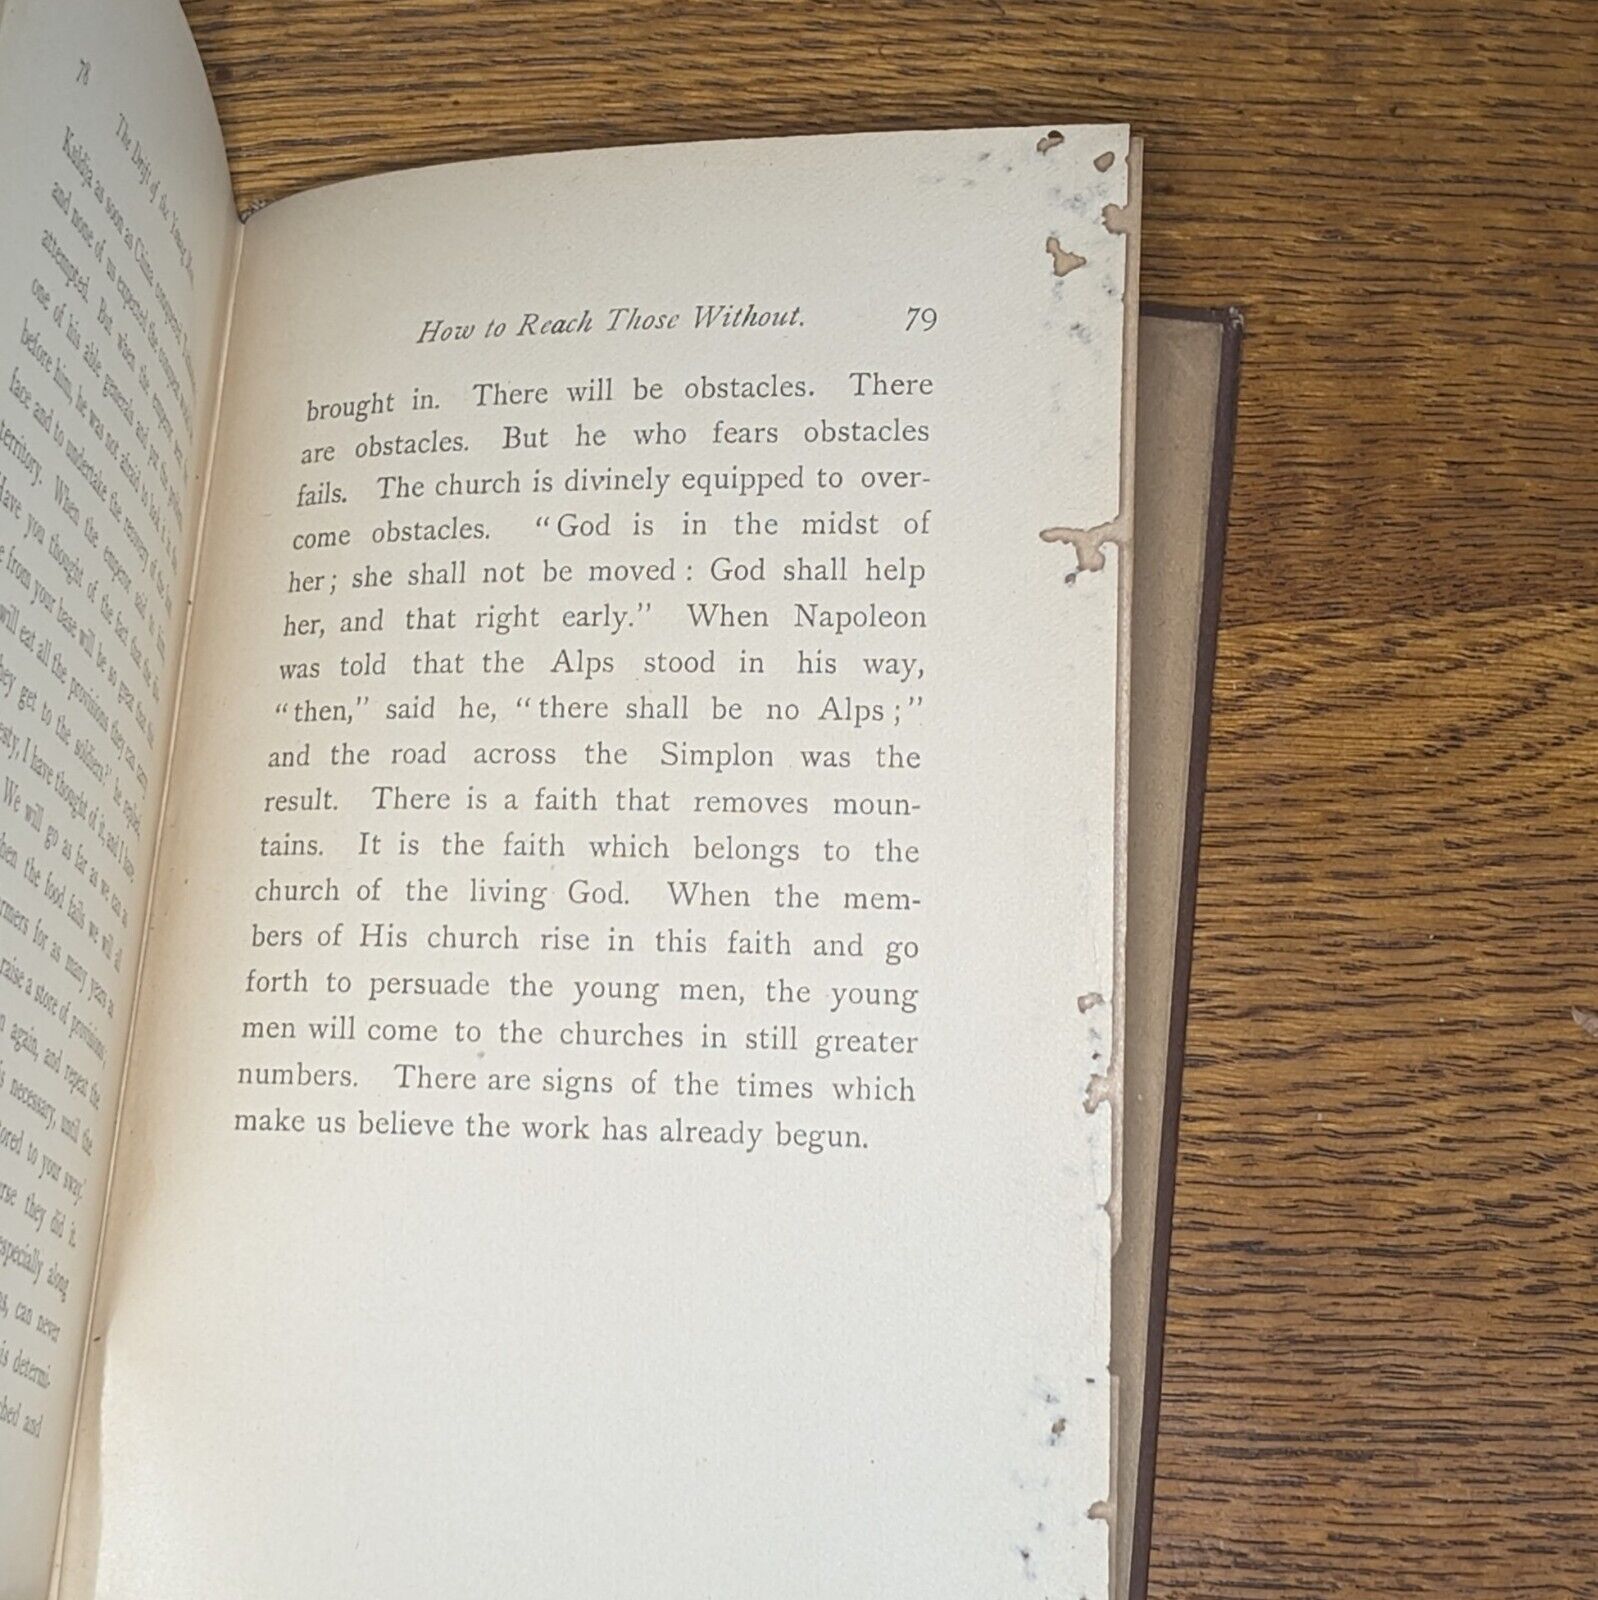 78
The Drift of the Young Men
Kuldja as soon as China conquered
and none of us expected the conquest
attempted. But when the emperor
one of his able generals and put the
before him, he was not afraid to look it in the
face and to undertake the recovery of the
territory. When the emperor said to him,
Have you thought of the fact that the
from your base will be so great that the
will eat all the provisions they can carry
they get to the soldiers?' he replied,
I have thought of it, and I have
We will go as far as we can
the food fails we will all
for as many years as
raise a store of provisions,
again, and repeat the
necessary, until the
to your sway.'
they did it.
especially along
can never
determi-
and
How to Reach Those Without. 79
brought in. There will be obstacles. There
are obstacles. But he who fears obstacles
fails. The church is divinely equipped to over-
come obstacles. "God is in the midst of
her; she shall not be moved: God shall help
her, and that right early." When Napoleon
was told that the Alps stood in his way,
"then," said he, "there shall be no Alps;"
and the road across the Simplon was the
result. There is a faith that removes moun-
tains. It is the faith which belongs to the
church of the living God. When the mem-
bers of His church rise in this faith and go
forth to persuade the young men, the young
men will come to the churches in still greater
numbers. There are signs of the times which
make us believe the work has already begun.